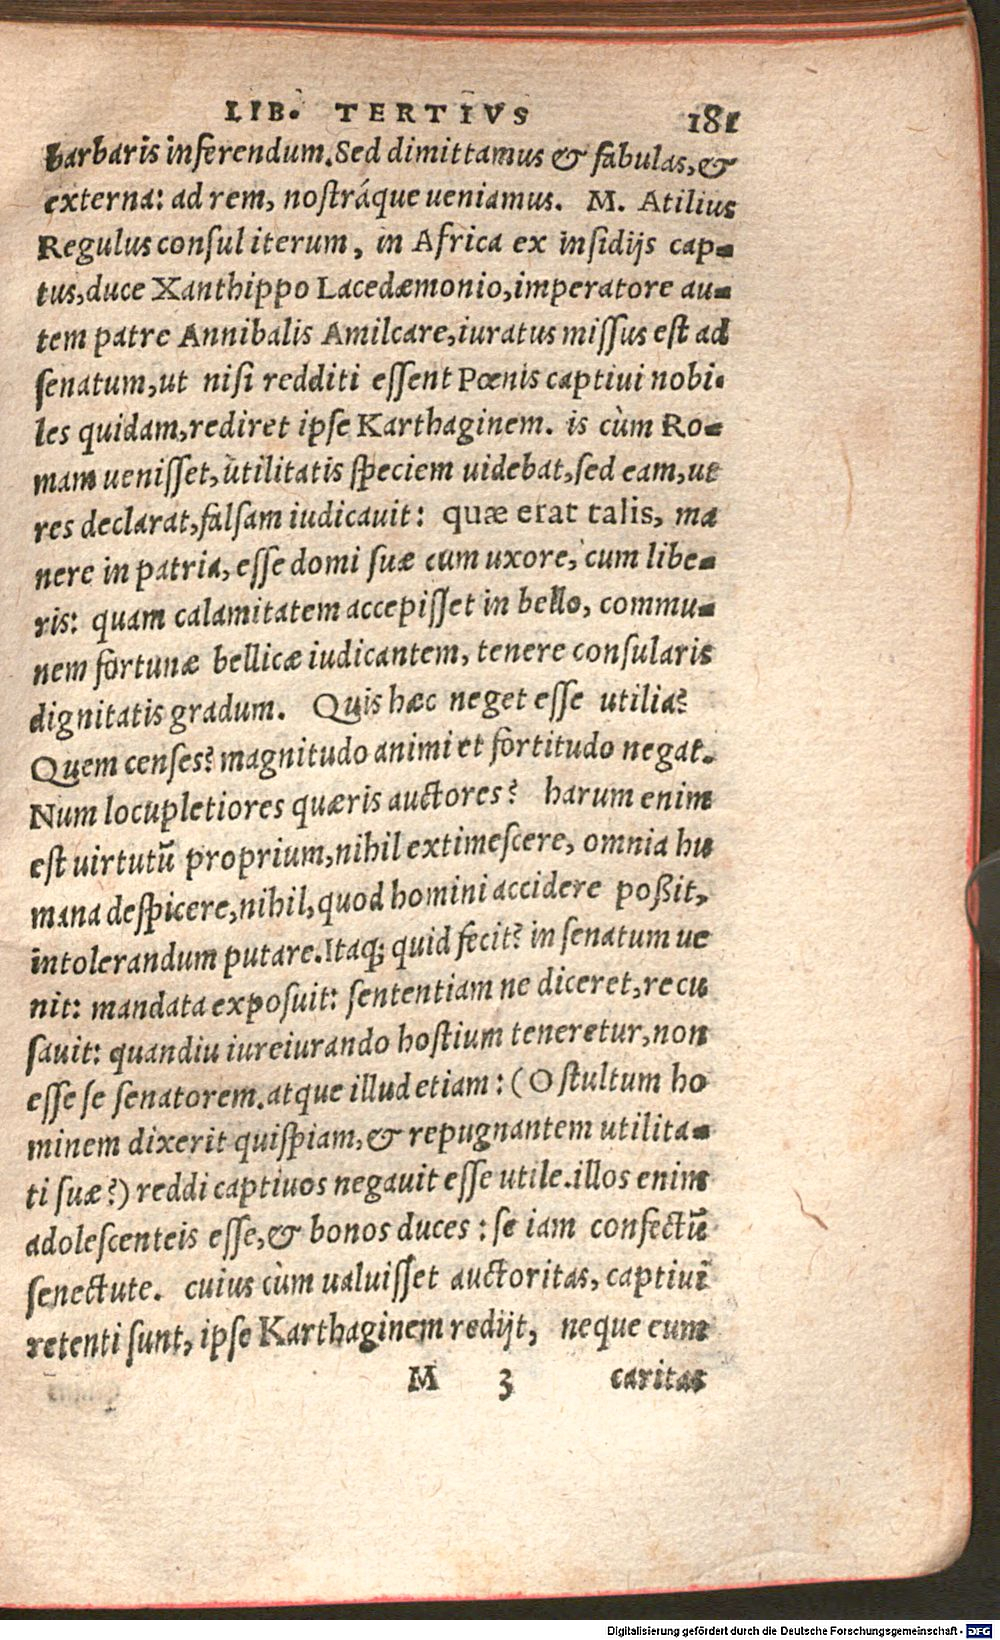 LIB. TERTIVS 181
barbaris inferendum. Sed dimittamus & fabulas, &
externa: ad rem, nostráque ueniamus. M. Atilius
Regulus consul iterum, in Africa ex insidijs cap-
tus, duce Xanthippo Lacedæmonio, imperatore au-
tem patre Annibalis Amilcare, iuratus missus est ad
senatum, ut nisi redditi essent Pœnis captiui nobi-
les quidam, rediret ipse Karthaginem. is cùm Ro-
mam uenisset, utilitatis speciem uidebat, sed eam, ut
res declarat, falsam iudicauit: quæ erat talis, ma
nere in patria, esse domi suæ cum uxore, cum libe-
ris: quam calamitatem accepisset in bello, commu-
nem fortunæ bellicæ iudicantem, tenere consularis
dignitatis gradum. Quis hæc neget esse utilia?
Quem censes? magnitudo animi et fortitudo negat.
Num locupletiores quæris auctores? harum enim
est uirtutũ proprium, nihil extimescere, omnia hu
mana despicere, nihil, quod homini accidere poßit,
intolerandum putare. Itaq; quid fecit? in senatum ue
nit: mandata exposuit: sententiam ne diceret, recu
sauit: quandiu iureiurando hostium teneretur, non
esse se senatorem. atque illud etiam: (O stultum ho
minem dixerit quispiam, & repugnantem utilita-
ti suæ?) reddi captiuos negauit esse utile. illos enim
adolescenteis esse, & bonos duces: se iam confectũ
senectute. cuius cùm ualuisset auctoritas, captiui
retenti sunt, ipse Karthaginem redijt, neque eum
M 3 caritas
Digitalisierung gefördert durch die Deutsche Forschungsgemeinschaft - DFG